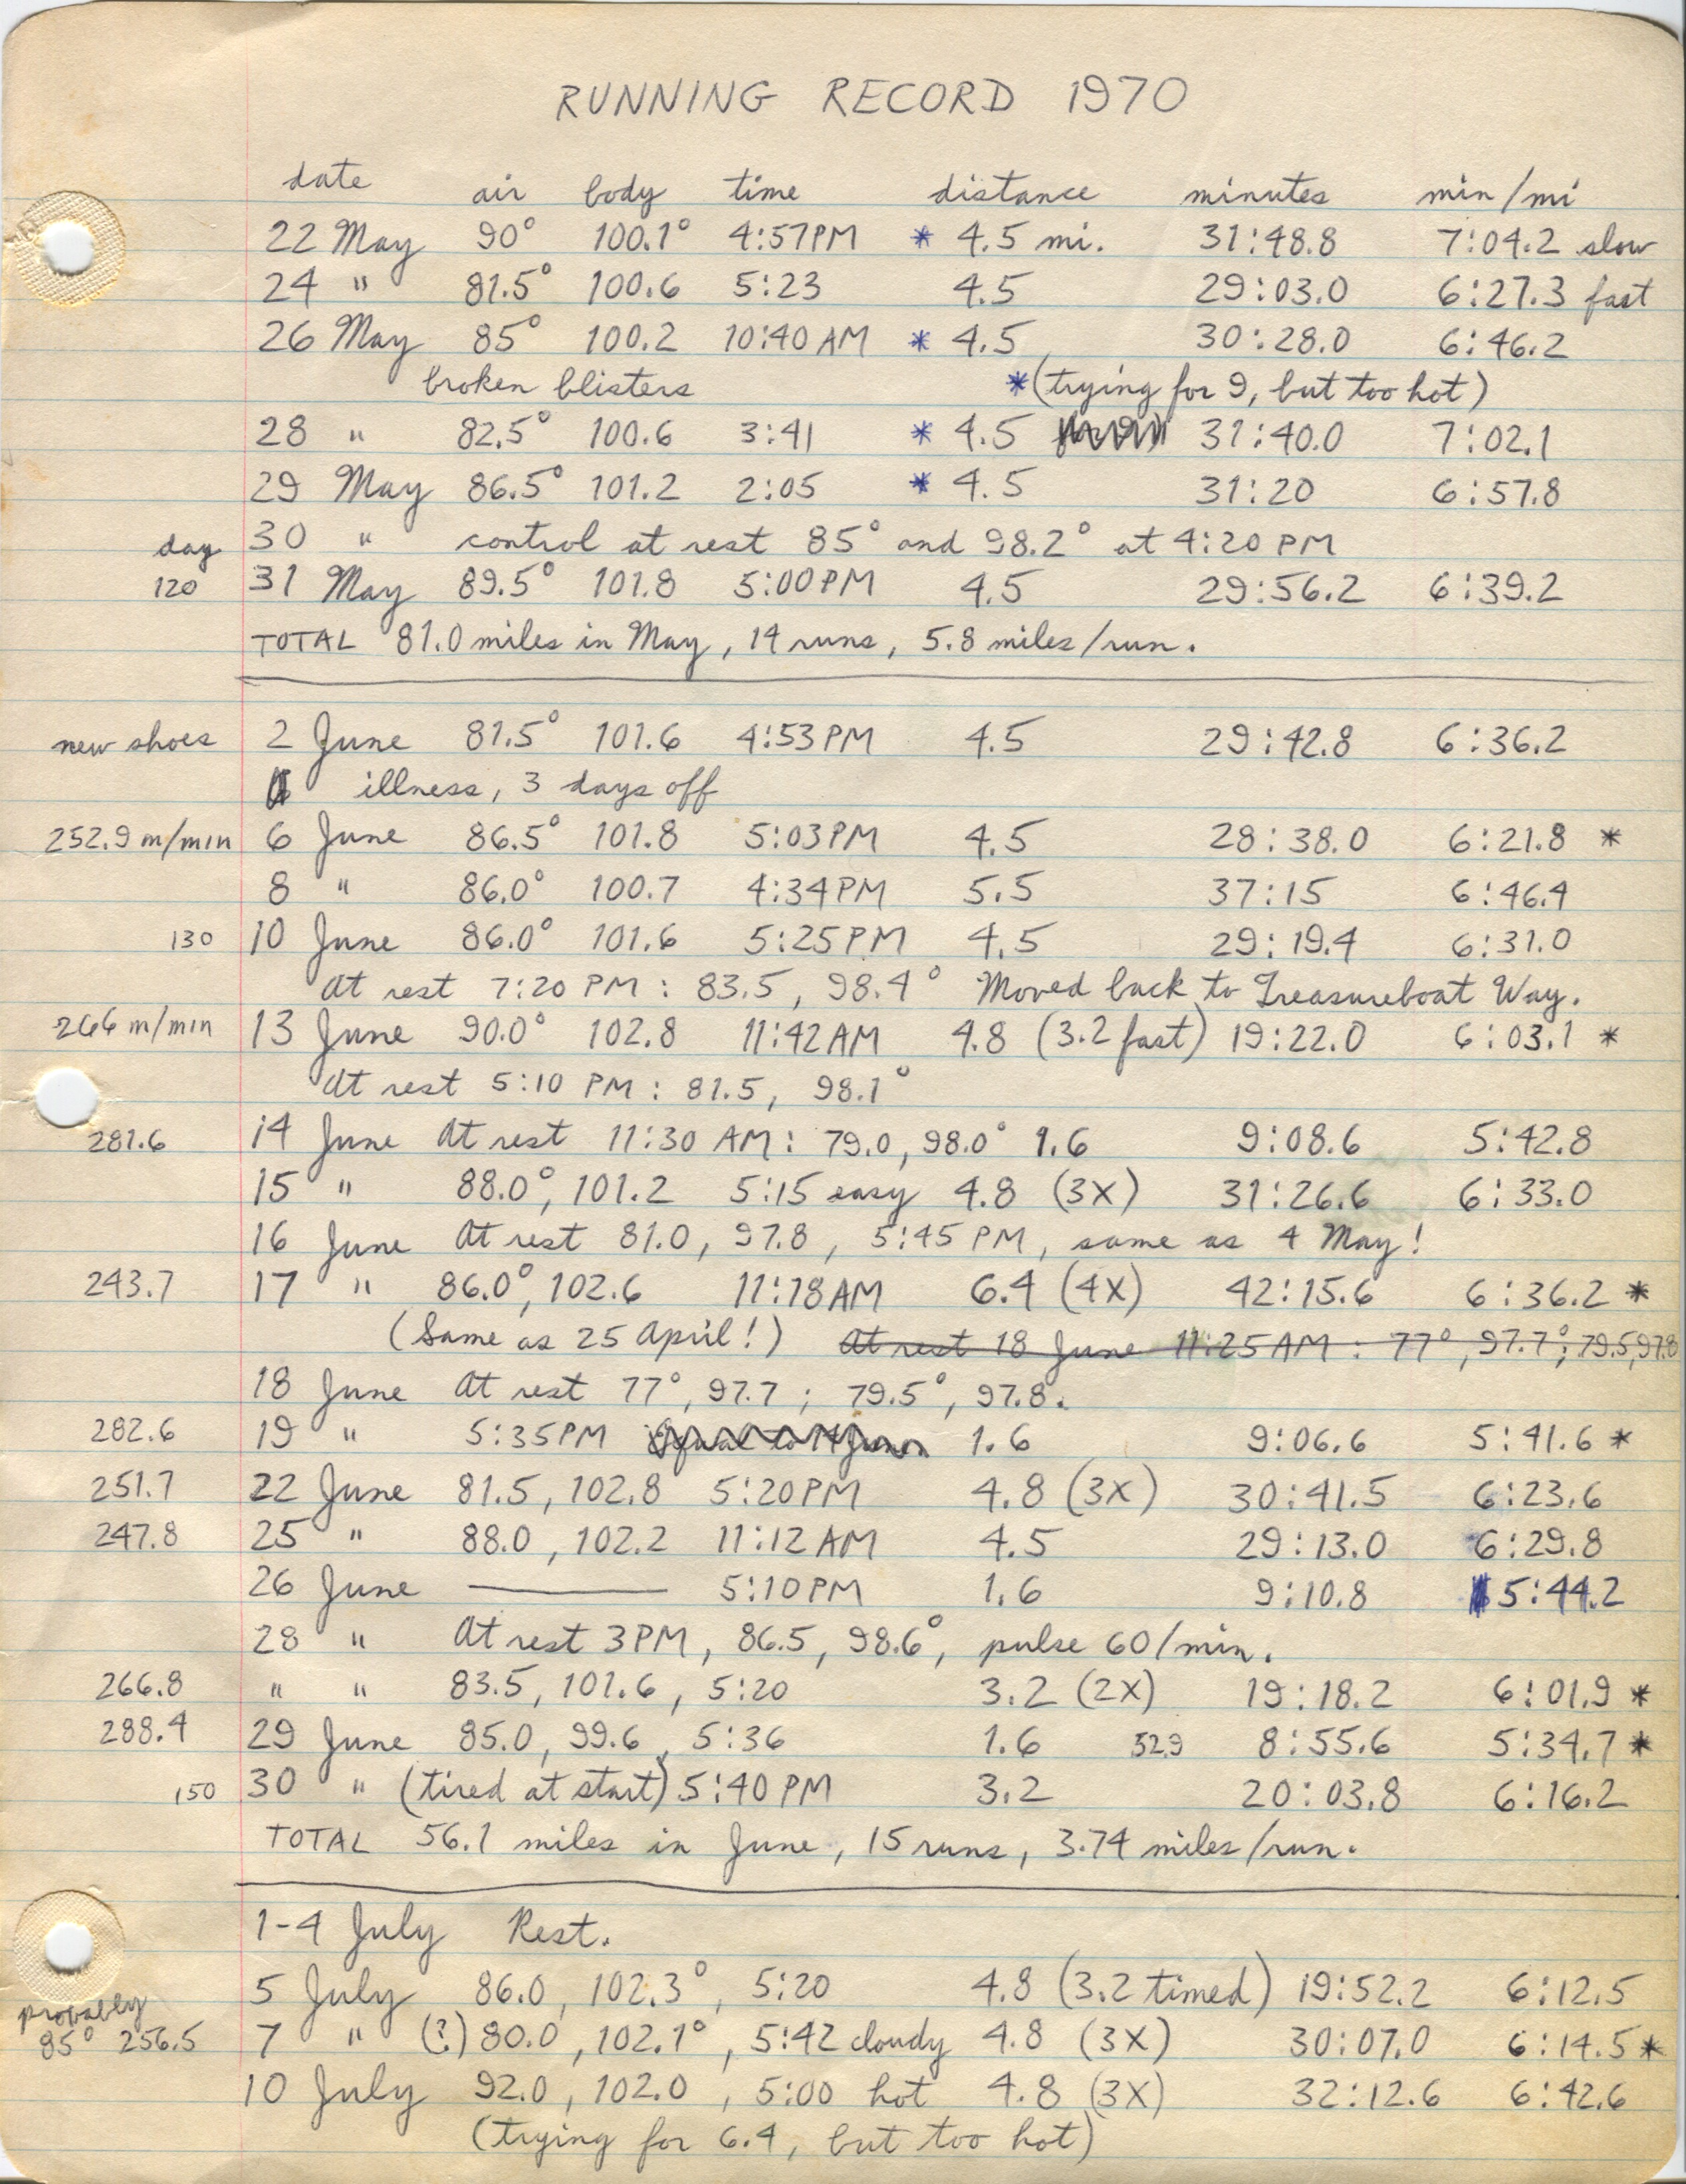 RUNNING RECORD 1970
date air body time distance minutes min/mi
22 May 90° 100.1° 4:57PM * 4.5 mi. 31:48.8 7:04.2 slow
24 " 81.5° 100.6 5:23 4.5 29:03.0 6:27.3 fast
26 May 85° 100.2 10:40 AM * 4.5 30:28.0 6:46.2
broken blisters *(trying for 9, but too hot)
28 " 82.5° 100.6 3:41 * 4.5 31:40.0 7:02.1
29 May 86.5° 101.2 2:05 * 4.5 31:20 6:57.8
day 30 " control at rest 85° and 98.2° at 4:20 PM
120 31 May 89.5° 101.8 5:00PM 4.5 29:56.2 6:39.2
TOTAL 81.0 miles in May, 14 runs, 5.8 miles/run.
new shoes 2 June 81.5° 101.6 4:53PM 4.5 29:42.8 6:36.2
illness, 3 days off
252.9 m/min 6 June 86.5° 101.8 5:03PM 4.5 28:38.0 6:21.8 *
8 " 86.0° 100.7 4:34PM 5.5 37:15 6:46.4
130 10 June 86.0° 101.6 5:25PM 4.5 29:19.4 6:31.0
At rest 7:20 PM: 83.5, 98.4° Moved back to Treasureboat Way.
266 m/min 13 June 90.0° 102.8 11:42AM 4.8 (3.2 fast) 19:22.0 6:03.1 *
At rest 5:10 PM: 81.5, 98.1°
281.6 14 June At rest 11:30 AM: 79.0, 98.0° 1.6 9:08.6 5:42.8
15 " 88.0°, 101.2 5:15 easy 4.8 (3X) 31:26.6 6:33.0
16 June At rest 81.0, 97.8, 5:45 PM, same as 4 May!
243.7 17 " 86.0°, 102.6 11:18AM 6.4 (4X) 42:15.6 6:36.2 *
(Same as 25 April!) At rest 18 June 11:25 AM: 77°, 97.7°; 79.5, 97.8
18 June At rest 77°, 97.7; 79.5°, 97.8.
282.6 19 " 5:35PM 1.6 9:06.6 5:41.6 *
251.7 22 June 81.5, 102.8 5:20PM 4.8 (3X) 30:41.5 6:23.6
247.8 25 " 88.0, 102.2 11:12 AM 4.5 29:13.0 6:29.8
26 June — 5:10PM 1.6 9:10.8 5:44.2
28 " At rest 3PM, 86.5, 98.6°, pulse 60/min.
266.8 " " 83.5, 101.6, 5:20 3.2 (2X) 19:18.2 6:01.9 *
288.4 29 June 85.0, 99.6, 5:36 1.6 32.9 8:55.6 5:34.7 *
150 30 " (tired at start) 5:40 PM 3.2 20:03.8 6:16.2
TOTAL 56.1 miles in June, 15 runs, 3.74 miles/run.
1-4 July Rest.
5 July 86.0, 102.3°, 5:20 4.8 (3.2 timed) 19:52.2 6:12.5
probably
85° 256.5 7 " (?) 80.0, 102.1°, 5:42 cloudy 4.8 (3X) 30:07.0 6:14.5 *
10 July 92.0, 102.0, 5:00 hot 4.8 (3X) 32:12.6 6:42.6
(trying for 6.4, but too hot)